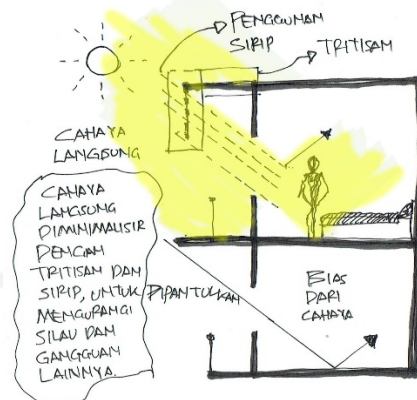 PENGGUNAAN
SIRIP
TRITISAN
CAHAYA
LANGSUNG
CAHAYA
LANGSUNG
DIMINIMALISIR
DENGAN
TRITISAN DAN
SIRIP, UNTUK DIPANTULKAN
MENGURANGI
SILAU DAN
GANGGUAN
LAINNYA.
BIAS
DARI
CAHAYA